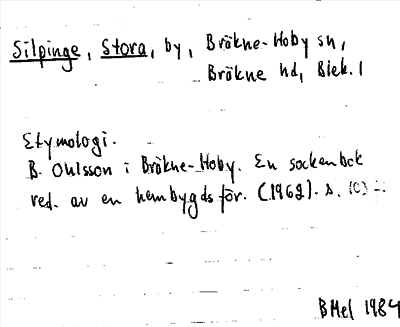 Silpinge, Stora, by, Bräkne-Hoby sn,
Bräkne hd, Blek. l
Etymologi.
B. Ohlsson i Bräkne-Hoby. En sockenbok
red. av en hembygdsför. (1962). s.
BMel 1984